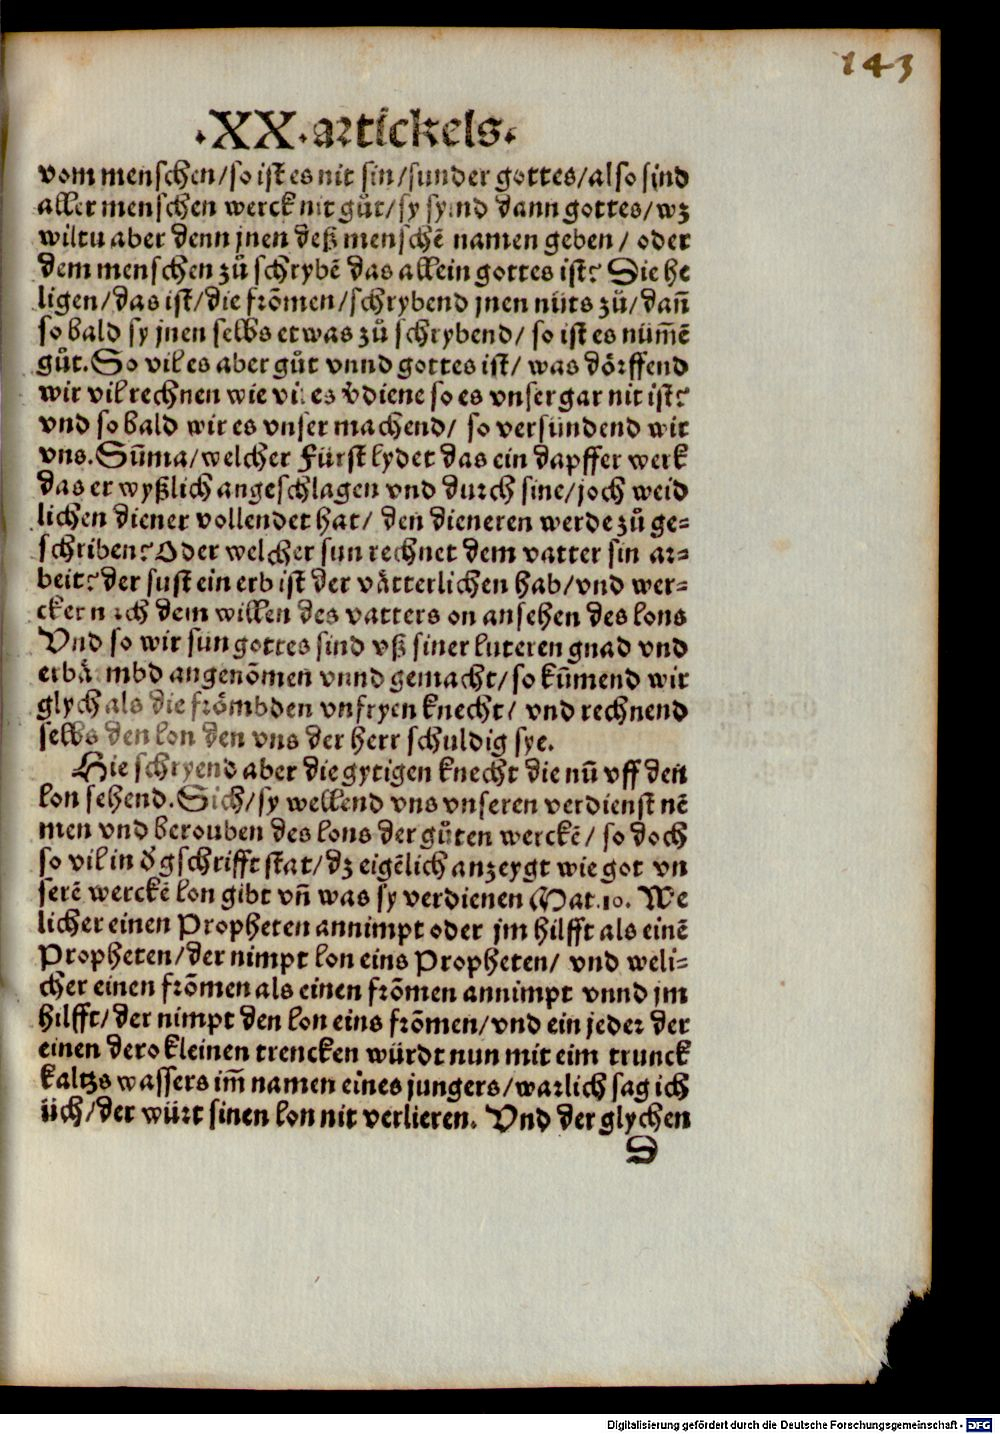 143
.XX.artickels.
vom menschen/so ist es nit sin/sunder gottes/also sind
aller menschen werck nit gůt/sy syind dann gottes/wz
wiltu aber denn jnen deß menschē namen geben/ oder
dem menschen zů schrybē das allein gottes ist? Die he
ligen/das ist/die frōmen/schrybend jnen nüts zů/dañ
so bald sy jnen selbs etwas zů schrybend/ so ist es nüm̄ē
gůt. So vil es aber gůt vnnd gottes ist/ was dörffend
wir vil rechnen wie vil es v̄diene so es vnser gar nit ist?
vnd so bald wir es vnser machend/ so versündend wir
vns. Sūma/welcher Fürst lydet das ein dapffer werk
das er wyßlich angeschlagen vnd durch sine/joch weid
lichen diener vollendet hat/ den dieneren werde zů ge=
schriben? Oder welcher sun rechnet dem vatter sin ar=
beit? der sust ein erb ist der vätterlichen hab/vnd wer=
cket nach dem willen des vatters on ansehen des lons
Vnd so wir sün gottes sind vß siner luteren gnad vnd
erbärmbd angenōmen vnnd gemacht/so kūmend wir
glych als die frömbden vnfryen knecht/ vnd rechnend
selbs den lon den vns der herr schuldig sye.
Hie schryend aber die gytigen knecht die nū vff den
lon sehend. Sich/sy wellend vns vnseren verdienst nē
men vnd berouben des lons der gůten werckē/ so doch
so vil in d̄ gschrifft stat/dz eigēlich anzeygt wie got vn
serē werckē lon gibt vñ was sy verdienen Mat.10. We
licher einen Propheten annimpt oder jm hilfft als einē
Propheten/der nimpt lon eins Propheten/ vnd weli=
cher einen frōmen als einen frōmen annimpt vnnd jm
hilfft/der nimpt den lon eins frōmen/vnd ein jeder der
einen dero kleinen trencken würdt nun mit eim trunck
kaltzs wassers im̄ namen eines jungers/warlich sag ich
üch/der würt sinen lon nit verlieren. Vnd der glychen
S
Digitalisierung gefördert durch die Deutsche Forschungsgemeinschaft - DFG